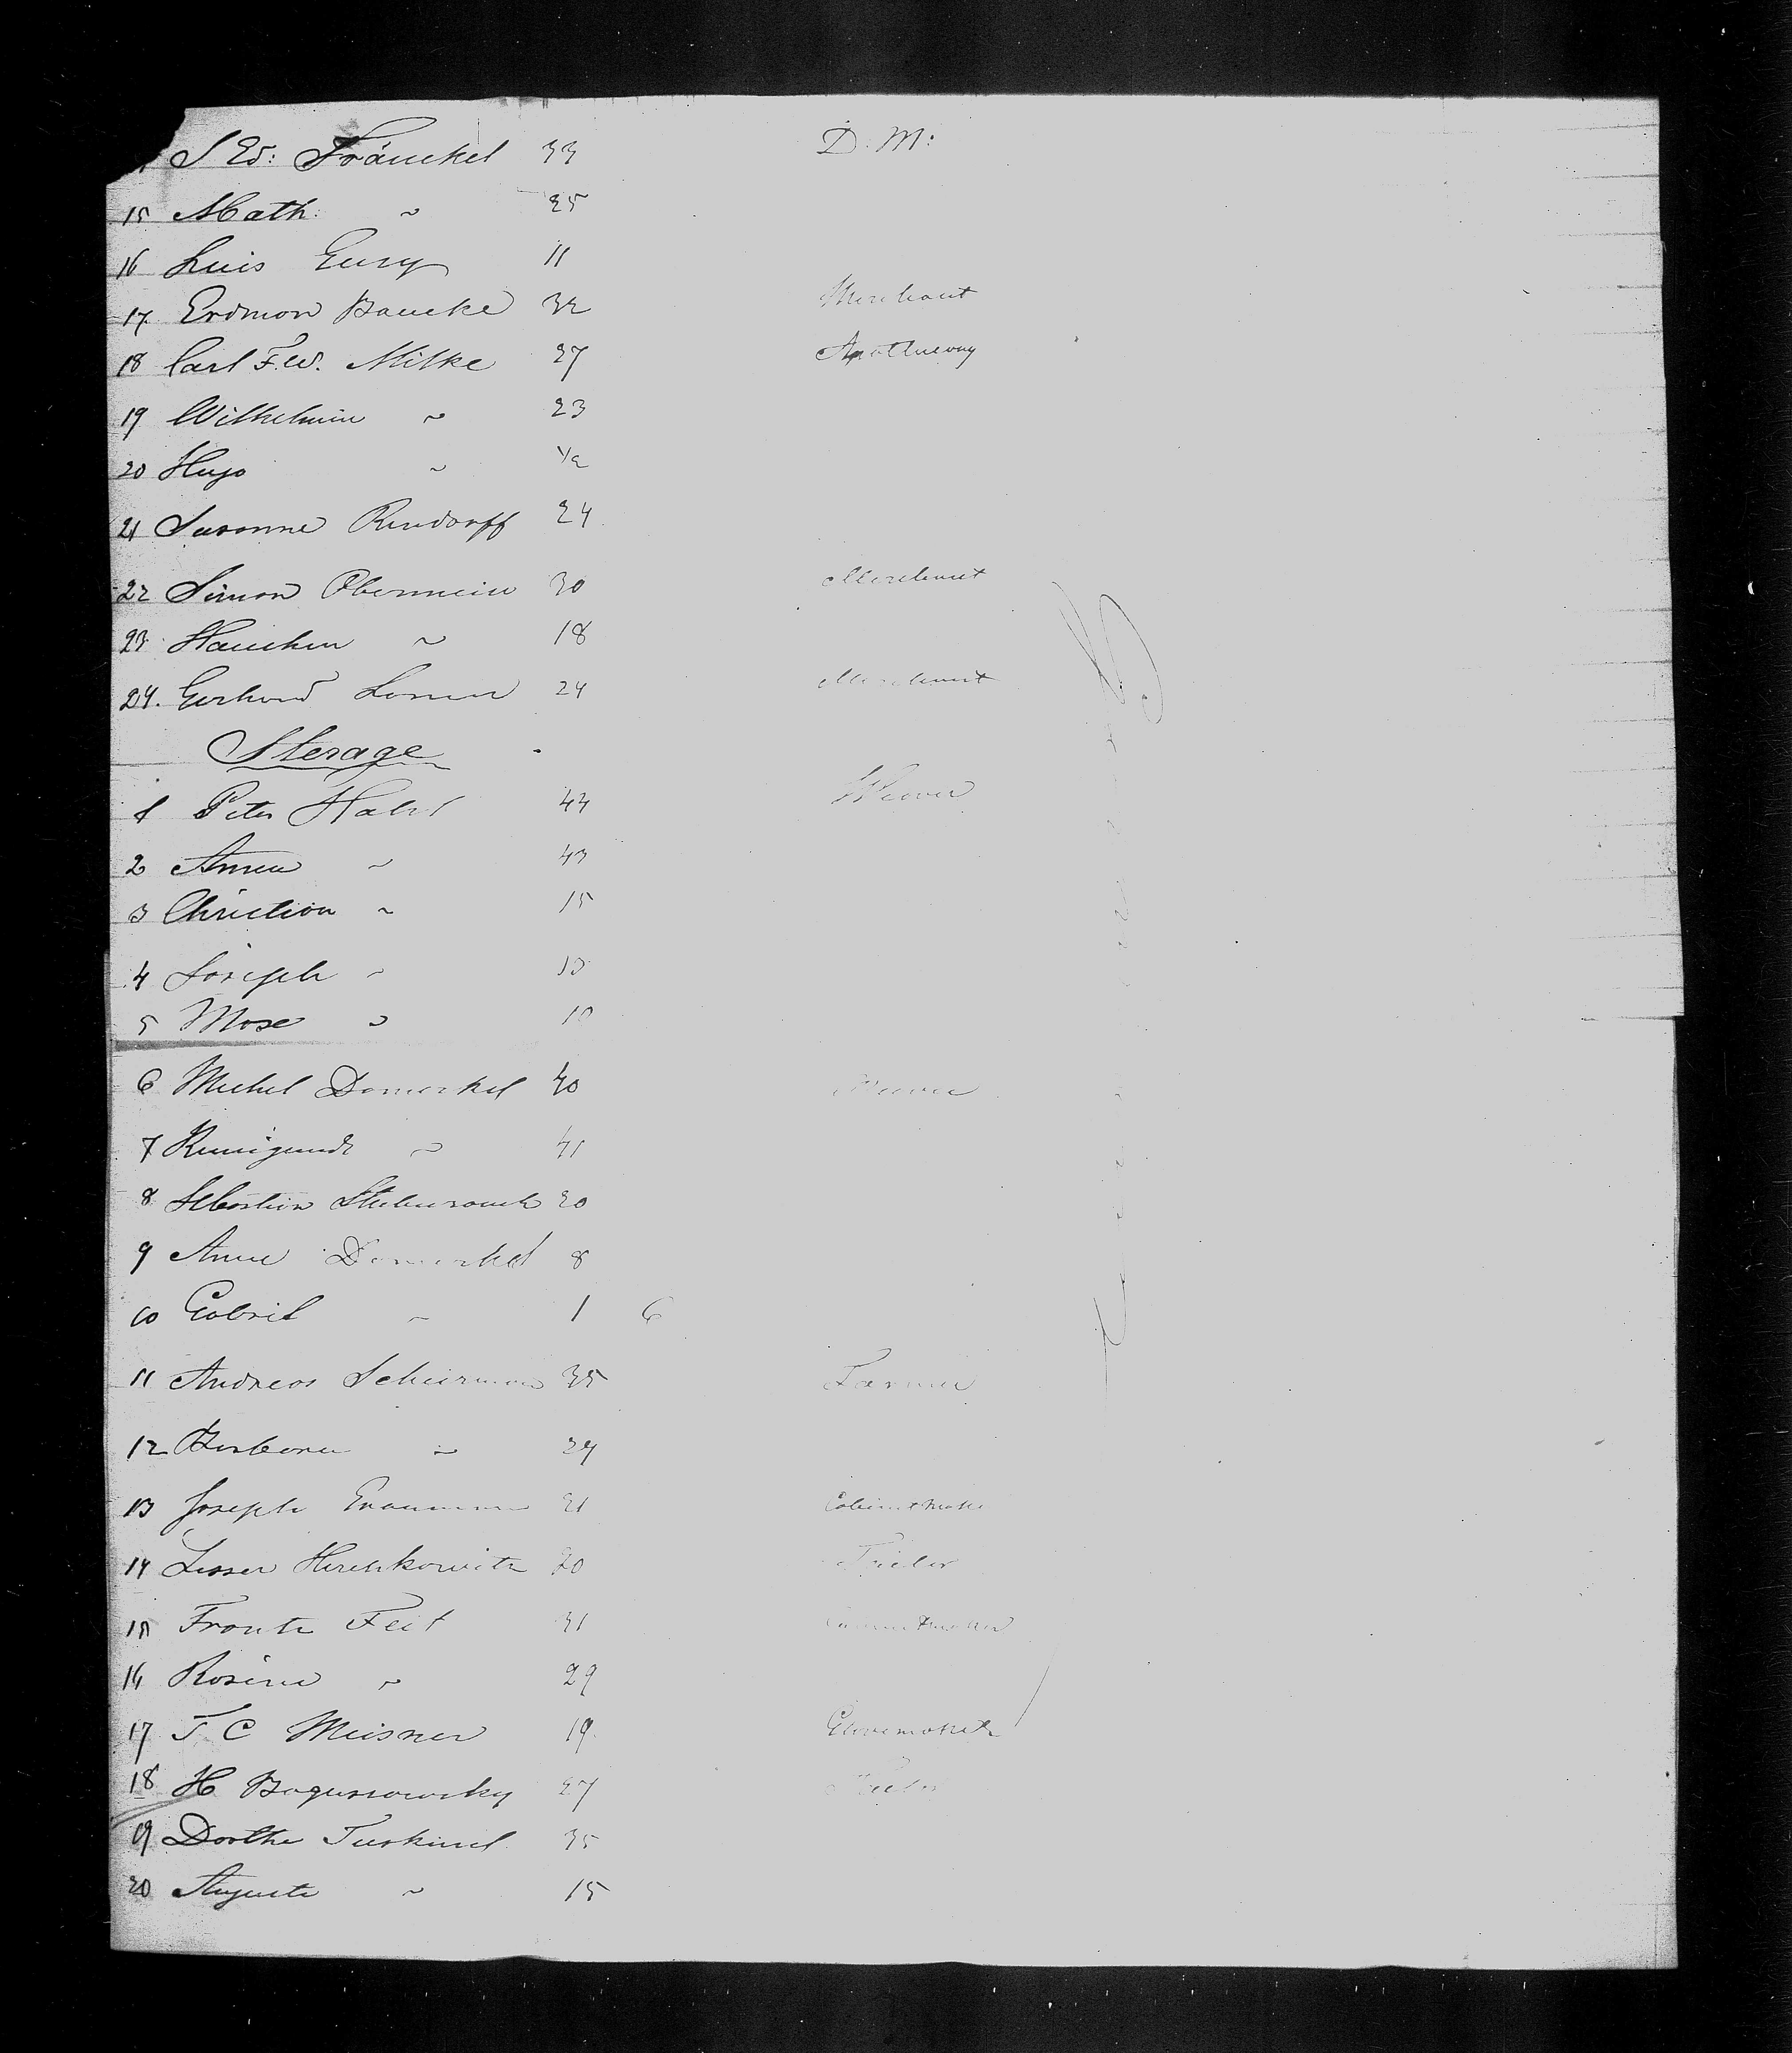 S Ed: Fränckel 33 D. M:
15 Math: ~ 25
16 Luis Eury 11
17. Erdmon Baucke 32 Merchant
18 Carl F.W. Milke 27 Apothecary
19 Wilhelmin ~ 23
20 Hugo ~ 1/2
21 Susanne Rindorff 24
22 Simon Obermeier 30 Merchant
23 Hanchen ~ 18
24. Gerhard 24 Merchant
Sterage
1 Peter 44 Weaver
2 Anna ~ 43
3 Christian ~ 15
4 Joseph ~ 10
5 Mose ~ 10
6 Michel Domerkel 40 Weaver
7 Kunigunde ~ 41
8 Sebastian 20
9 Anne Domerkel 8
10 Gabril ~ 1 6
11 Andreas Scheirman 35 Farmer
12 Barbara ~ 24
13 Joseph 21 Cabinetmaker
14 Lesser Hirchkowitz 20 Tailor
15 Frantz Feit 31
16 Rosine ~ 29
17 T C Meisner 19 Glovemaker
18 H Bogussowsky 27 Tailor
19 Dorthe Suskind 35
20 Auguste ~ 15
German